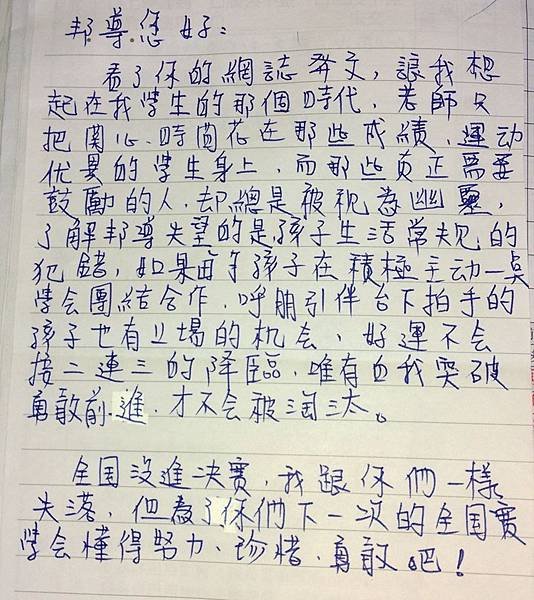 邦導您好：
看了你的網誌發文，讓我想
起在我學生的那個時代，老師只
把關心、時間花在那些成績、運动
优異的學生身上，而那些真正需要
鼓勵的人，却總是被視為幽靈，
了解邦導失望的是孩子生活常規的
犯錯，如果每个孩子在積極主动一点
學会團結合作，呼朋引伴台下拍手的
孩子也有上場的机会，好運不会
接二連三的降臨，唯有自我突破
勇敢前進，才不会被淘汰。
全国沒進決賽，我跟你們一樣
失落，但為了你們下一次的全国賽
學会懂得努力、珍惜、勇敢吧！